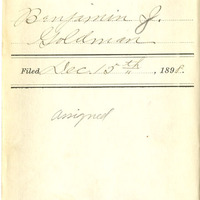 Benjamin J.
Goldman
Filed, Dec. 15th, 1898.
assigned